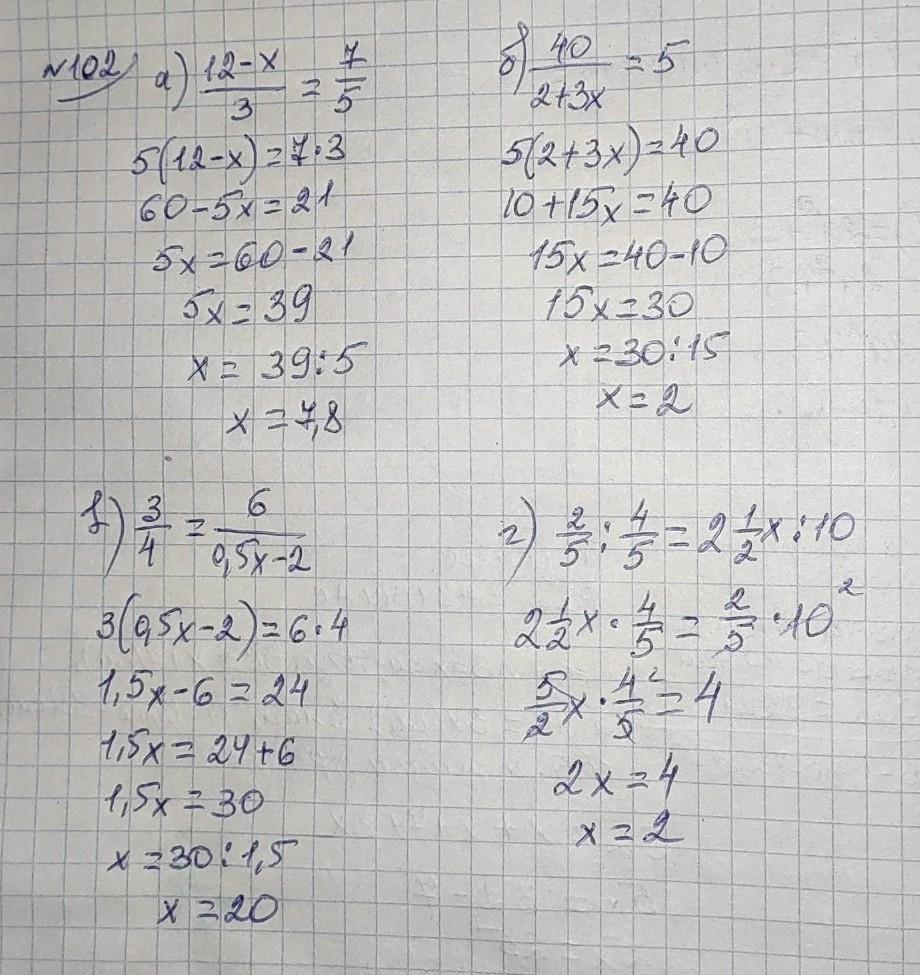 №102 а) (12-x)/3 = 7/5
5(12-x)=7·3
60-5x=21
5x=60-21
5x=39
x= 39:5
x=7,8
б) 40/(2+3x) = 5
5(2+3x)=40
10+15x=40
15x=40-10
15x=30
x=30:15
x=2
в) 3/4 = 6/(0,5x-2)
3(0,5x-2)=6·4
1,5x-6=24
1,5x=24+6
1,5x=30
x=30:1,5
x=20
г) 2/5 : 4/5 = 2 1/2 x:10
2 1/2 x · 4/5 = 2/5 · 10 ²
5/2 x · 4 ²/5 = 4
2x=4
x=2